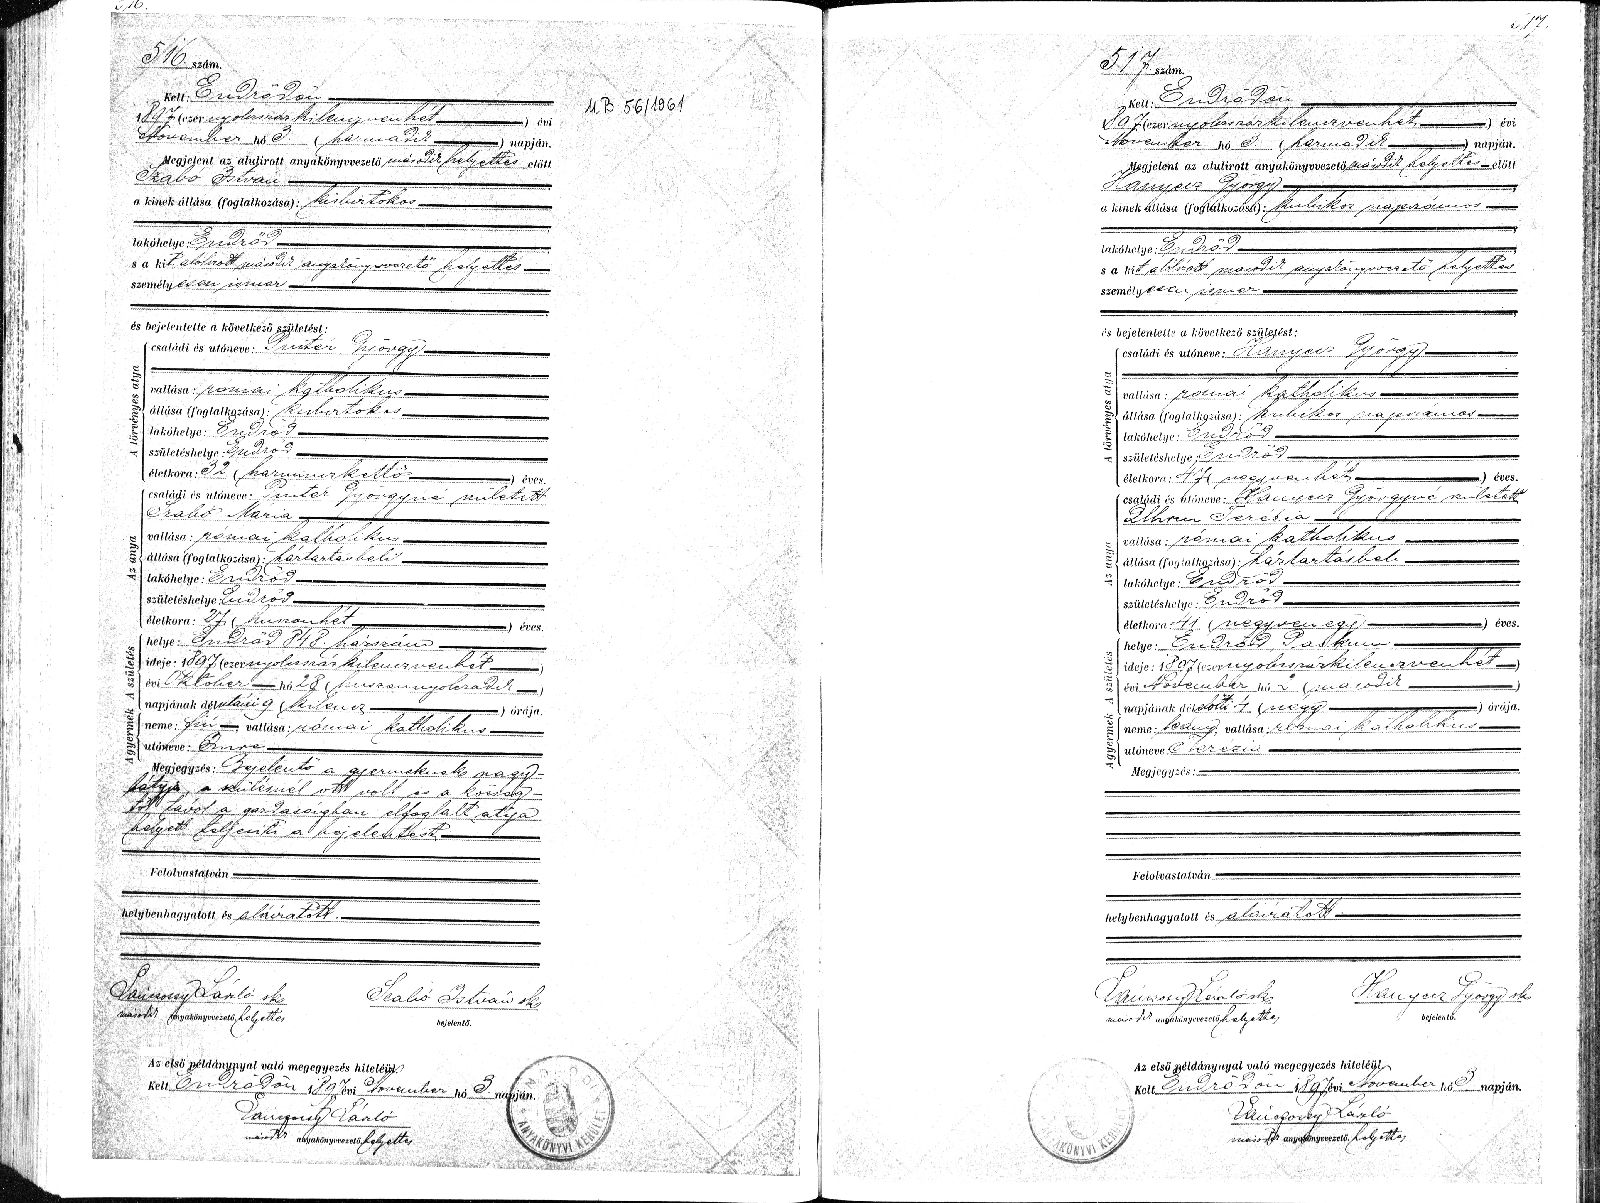 516.
516 szám.
Kelt: Endrődön
1897 (ezernyolcszázkilenczvenhét) évi
November hó 3 (harmadik) napján.
Megjelent az alulirott anyakönyvvezető második helyettes előtt
Szabó István
a kinek állása (foglalkozása): kisbirtokos
lakóhelye: Endrőd
s a kit alólirott második anyakönyvvezető helyettes
személyesen ismer
és bejelentette a következő születést:
A törvényes atya
családi és utóneve: Pintér György
vallása: római katholikus
állása (foglalkozása): kisbirtokos
lakóhelye: Endrőd
születéshelye: Endrőd
életkora: 32 (harminczkettő) éves.
Az anya
családi és utóneve: Pintér Györgyné született
Szabó Mária
vallása: római katholikus
állása (foglalkozása): háztartásbeli
lakóhelye: Endrőd
születéshelye: Endrőd
életkora: 27 (huszonhét) éves.
A születés
helye: Endrőd 848 házszám
ideje: 1897 (ezernyolcszázkilenczvenhét)
évi Október hó 28 (huszonnyolczadik)
napjának délutáni 9 (kilencz) órája.
A gyermek
neme: fiú vallása: római katholikus
utóneve: Imre
Megjegyzés: Bejelentő a gyermeknek nagy-
bátyja, a szülésnél ott volt és a község-
től távol a gazdaságban elfoglalt atya
helyett teljesíti a bejelentést
Felolvastatván
helybenhagyatott és aláiratott.
László sk
második anyakönyvvezető helyettes
Szabó István sk
bejelentő.
Az első példánynyal való megegyezés hiteléül
Kelt Endrődön 1897 évi November hó 3 napján.
László
második anyakönyvvezető helyettes
ANYAKÖNYVI KERÜLET
M.B 56/1961
517.
517 szám.
Kelt: Endrődön
1897 (ezernyolcszázkilenczvenhét) évi
November hó 3. (harmadik) napján.
Megjelent az alulirott anyakönyvvezető második helyettes előtt
Hanyecz György
a kinek állása (foglalkozása): kubikos napszámos
lakóhelye: Endrőd
s a kit alólirott második anyakönyvvezető helyettes
személyesen ismer
és bejelentette a következő születést:
A törvényes atya
családi és utóneve: Hanyecz György
vallása: római katholikus
állása (foglalkozása): kubikos napszámos
lakóhelye: Endrőd
születéshelye: Endrőd
életkora: 47 (negyvenhét) éves.
Az anya
családi és utóneve: Hanyecz Györgyné született
Terézia
vallása: római katholikus
állása (foglalkozása): háztartásbeli
lakóhelye: Endrőd
születéshelye: Endrőd
életkora: 41 (negyvenegy) éves.
A születés
helye: Endrőd
ideje: 1897 (ezernyolcszázkilenczvenhét)
évi November hó 2 (második)
napjának délelőtti 4 (négy) órája.
A gyermek
neme: leány, vallása: római katholikus
utóneve Terézia
Megjegyzés:
Felolvastatván
helybenhagyatott és aláiratott
László sk
második anyakönyvvezető helyettes
Hanyecz György sk
bejelentő.
Az első példánynyal való megegyezés hiteléül
Kelt Endrődön 1897 évi November hó 3 napján.
László
második anyakönyvvezető helyettes
ANYAKÖNYVI KERÜLET